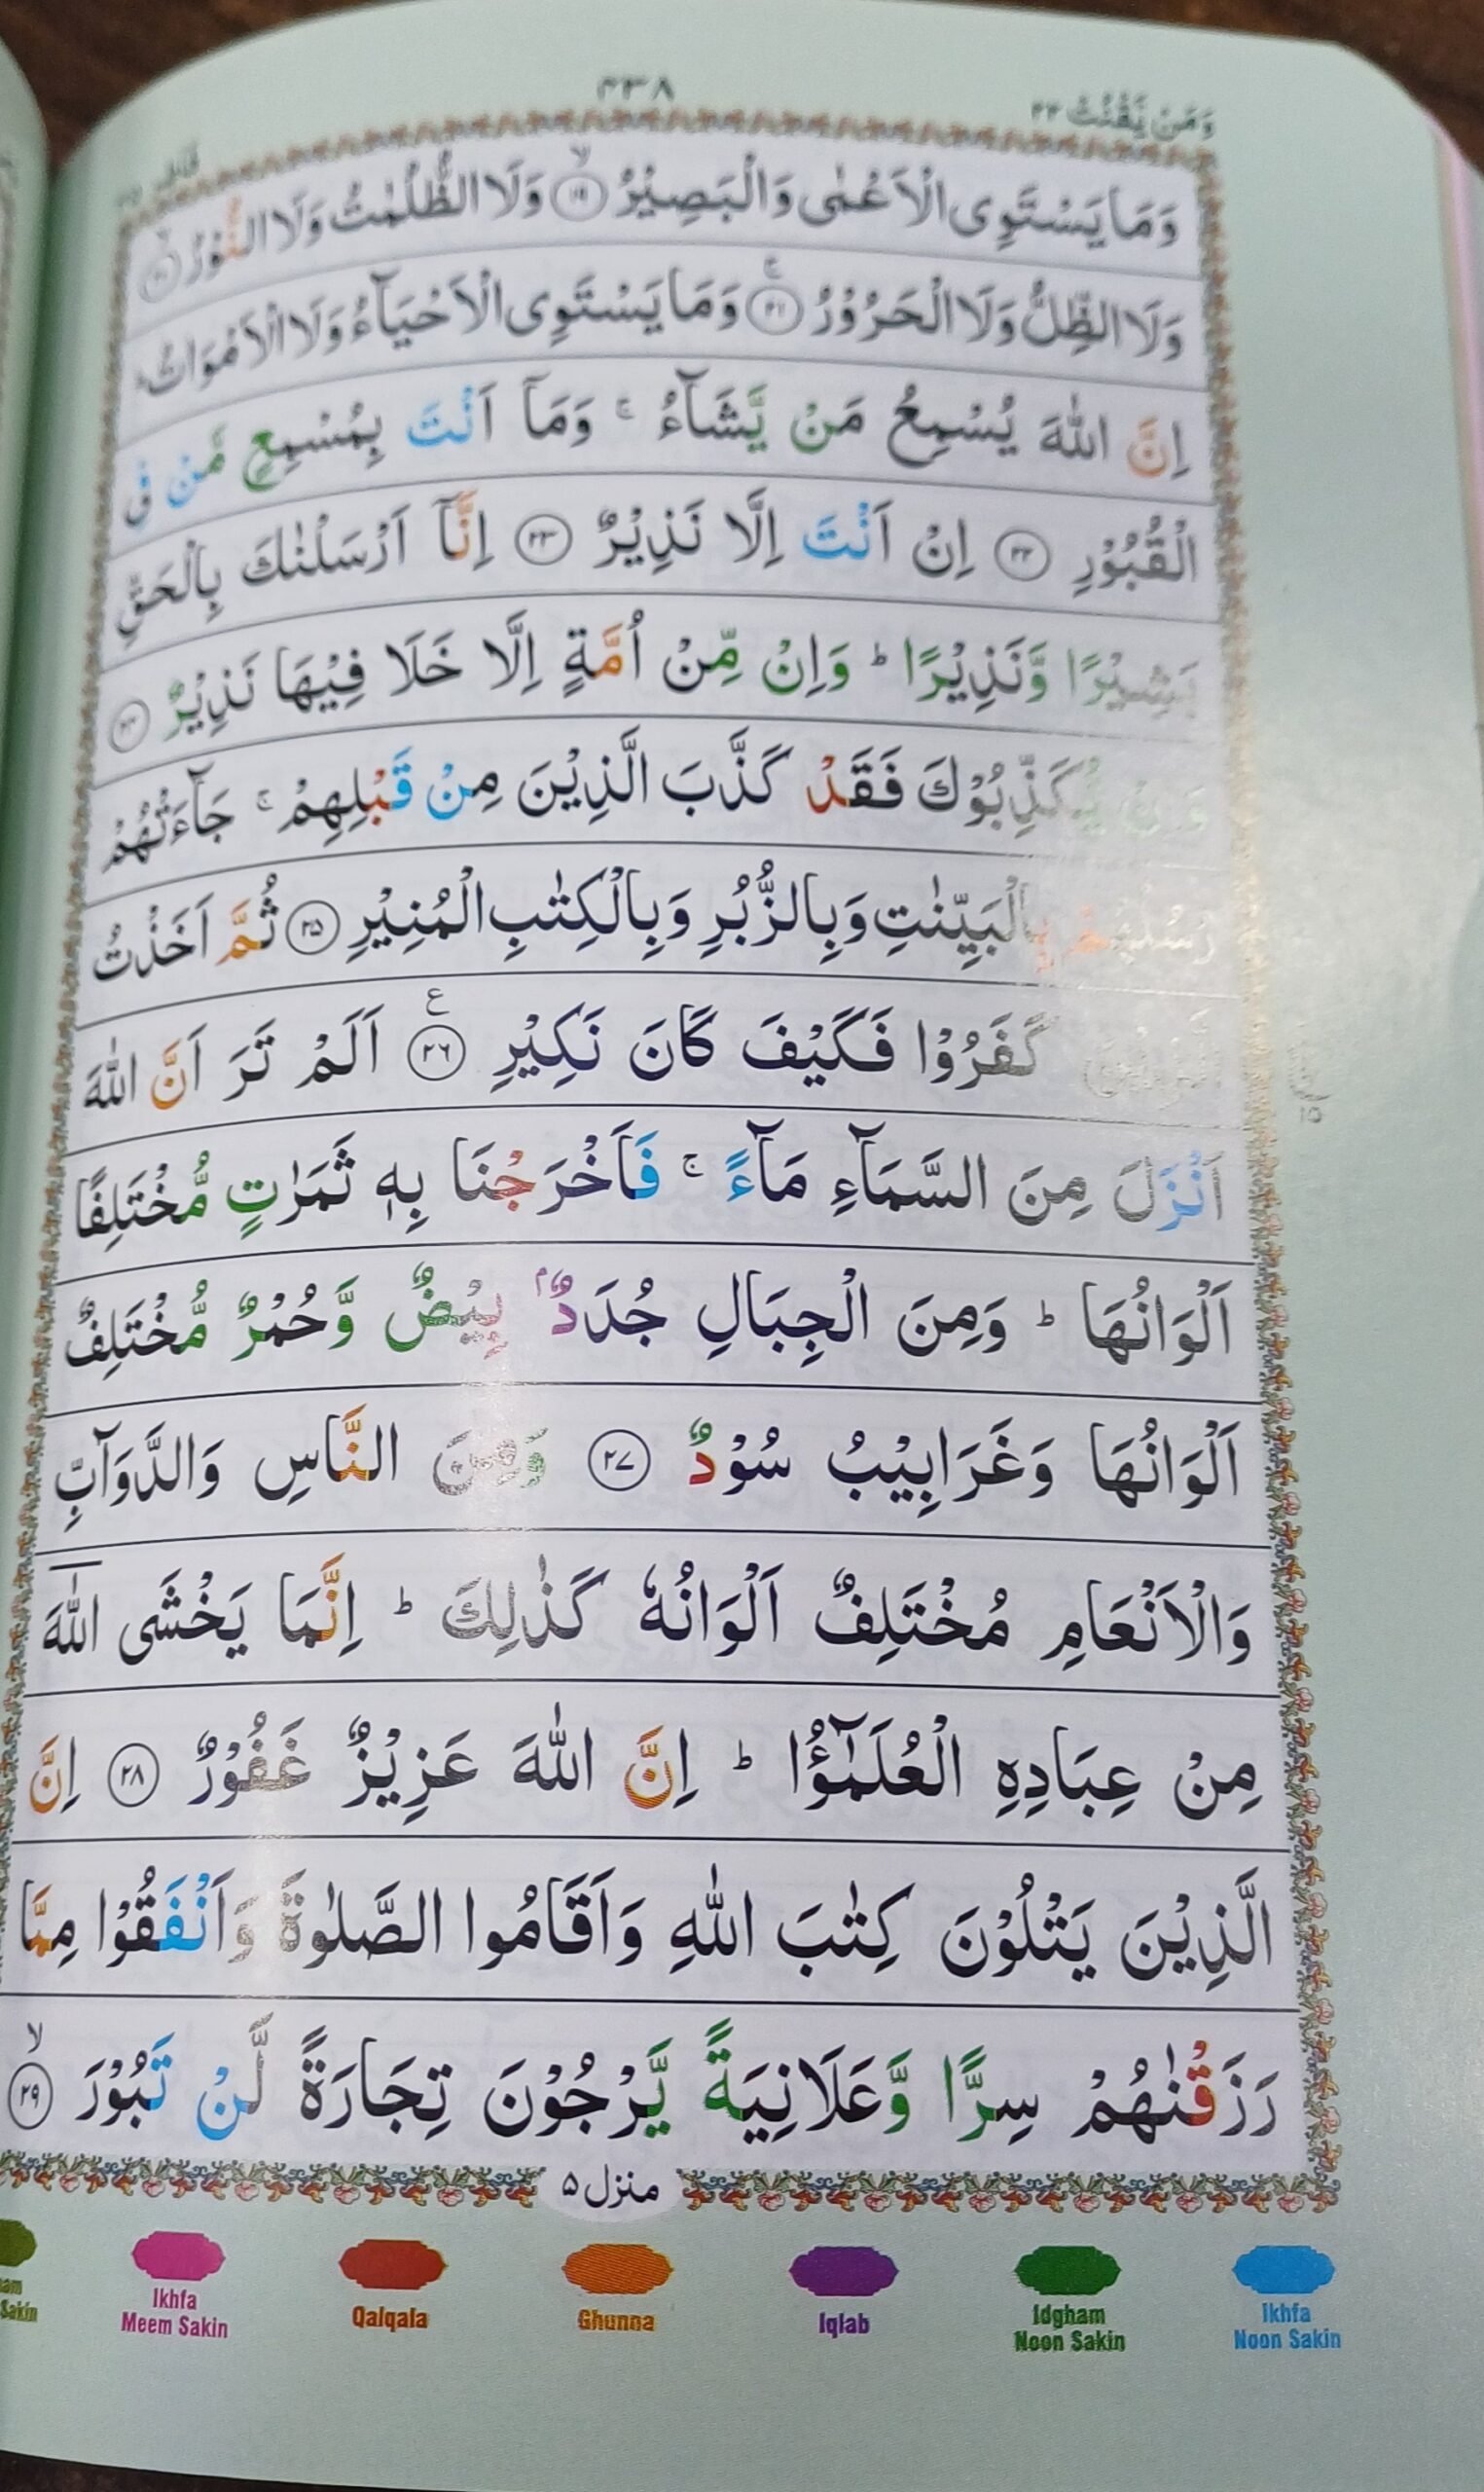 وَمَنْ يَّقْنُتْ ٢٢
٤٣٨
فاطر ٣٥
وَمَا يَسْتَوِى الْاَعْمٰى وَالْبَصِيْرُ ۙ‏ ﴿۱۹﴾ وَلَا الظُّلُمٰتُ وَلَا النُّوْرُ ۙ‏ ﴿۲۰﴾
وَلَا الظِّلُّ وَلَا الْحَرُوْرُ ۚ‏ ﴿۲۱﴾ وَمَا يَسْتَوِى الْاَحْيَآءُ وَلَا الْاَمْوَاتُ ؕ
اِنَّ اللّٰهَ يُسْمِعُ مَنْ يَّشَآءُ ۚ وَمَآ اَنْتَ بِمُسْمِعٍ مَّنْ فِى
الْقُبُوْرِ ﴿۲۲﴾ اِنْ اَنْتَ اِلَّا نَذِيْرٌ ﴿۲۳﴾ اِنَّآ اَرْسَلْنٰكَ بِالْحَقِّ
بَشِيْرًا وَّنَذِيْرًا ؕ وَاِنْ مِّنْ اُمَّةٍ اِلَّا خَلَا فِيْهَا نَذِيْرٌ ﴿۲۴﴾
يُّكَذِّبُوْكَ فَقَدْ كَذَّبَ الَّذِيْنَ مِنْ قَبْلِهِمْ ۚ جَآءَتْهُمْ
رُسُلُهُمْ بِالْبَيِّنٰتِ وَبِالزُّبُرِ وَبِالْكِتٰبِ الْمُنِيْرِ ﴿۲۵﴾ ثُمَّ اَخَذْتُ
كَفَرُوْا فَكَيْفَ كَانَ نَكِيْرِ ﴿۲۶﴾ ع اَلَمْ تَرَ اَنَّ اللّٰهَ
اَنْزَلَ مِنَ السَّمَآءِ مَآءً ۚ فَاَخْرَجْنَا بِهٖ ثَمَرٰتٍ مُّخْتَلِفًا
اَلْوَانُهَا ؕ وَمِنَ الْجِبَالِ جُدَدٌۢ بِيْضٌ وَّحُمْرٌ مُّخْتَلِفٌ
اَلْوَانُهَا وَغَرَابِيْبُ سُوْدٌ ﴿۲۷﴾ وَمِنَ النَّاسِ وَالدَّوَآبِّ
وَالْاَنْعَامِ مُخْتَلِفٌ اَلْوَانُهٗ كَذٰلِكَ ؕ اِنَّمَا يَخْشَى اللّٰهَ
مِنْ عِبَادِهِ الْعُلَمٰٓؤُا ؕ اِنَّ اللّٰهَ عَزِيْزٌ غَفُوْرٌ ﴿۲۸﴾ اِنَّ
الَّذِيْنَ يَتْلُوْنَ كِتٰبَ اللّٰهِ وَاَقَامُوا الصَّلٰوةَ وَاَنْفَقُوْا مِمَّا
رَزَقْنٰهُمْ سِرًّا وَّعَلَانِيَةً يَّرْجُوْنَ تِجَارَةً لَّنْ تَبُوْرَ ۙ‏ ﴿۲۹﴾
منزل ٥
Sakin Ikhfa Meem Sakin Qalqala Ghunna Iqlab Idgham Noon Sakin Ikhfa Noon Sakin